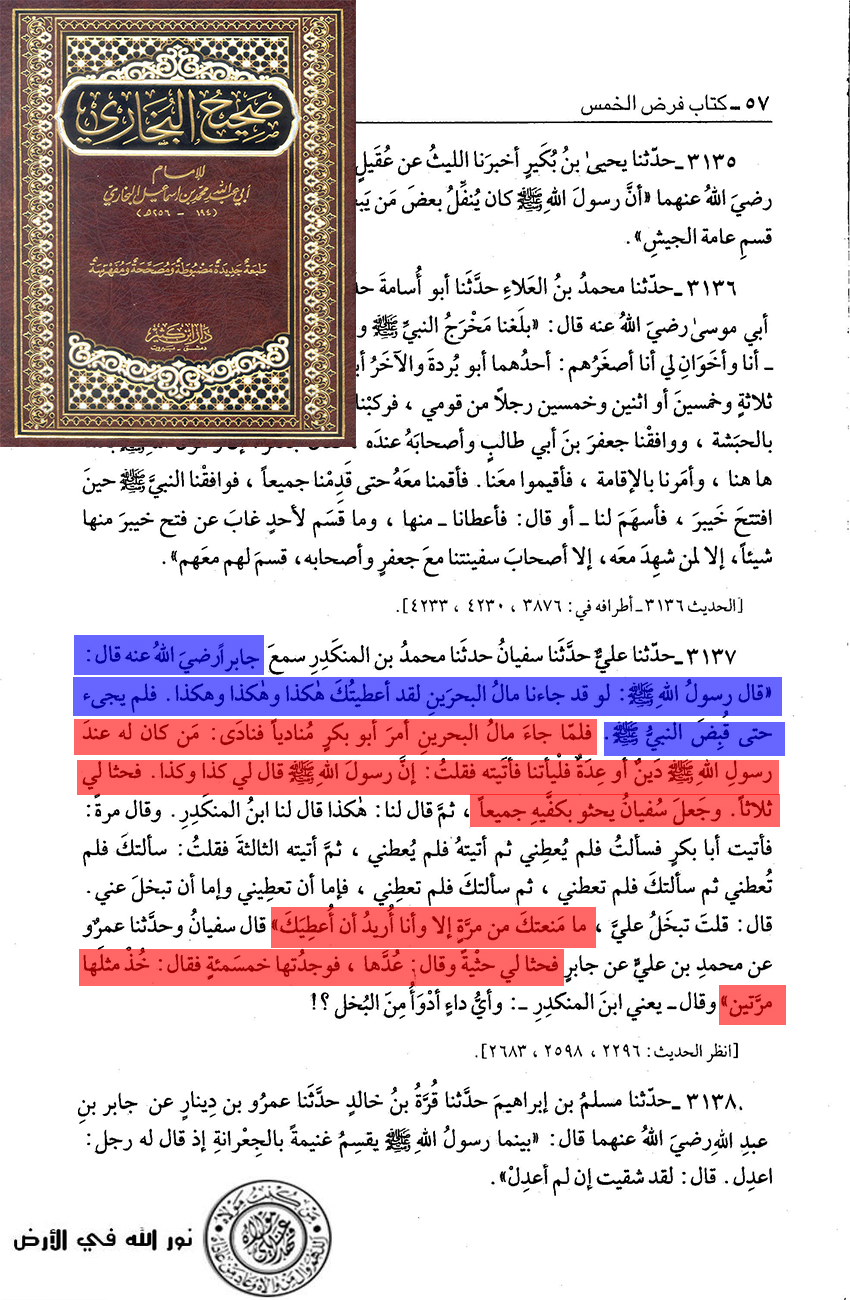 صحيح البخاري
للإمام
أبي عبد الله محمد بن إسماعيل البخاري
(١٩٤ - ٢٥٦هـ)
طبعة جديدة مضبوطة ومصححة ومفهرسة
دار ابن كثير
دمشق - بيروت
٥٧ ـ كتاب فرض الخمس
٣١٣٥ ـ حدّثنا يحيىٰ بنُ بُكَيرٍ أخبرَنا الليثُ عن عُقَيلٍ
رضيَ اللهُ عنهما «أنَّ رسولَ اللهِ ﷺ كان يُنفِّلُ بعضَ مَن
قسمِ عامة الجيشِ».
٣١٣٦ ـ حدّثنا محمدُ بنُ العَلاءِ حدَّثَنا أبو أُسامةَ
أبي موسىٰ رضيَ اللهُ عنه قال: «بلَغَنا مَخْرَجُ النبيِّ ﷺ
ـ أنا وأخَوَانِ لي أنا أصغَرُهم: أحدُهما أبو بُردةَ والآخَرُ
ثلاثةٍ وخمسينَ أو اثنين وخمسين رجلاً من قومي ، فركبْنا
بالحبَشة ، ووافقْنا جعفرَ بنَ أبي طالبٍ وأصحابَهُ عندَه ،
ها هنا ، وأمَرنا بالإقامة ، فأقيموا معَنا. فأقمنا معَهُ حتى قَدِمْنا جميعاً ، فوافقْنا النبيَّ ﷺ حينَ
افتتحَ خَيبرَ ، فأسهَمَ لنا ـ أو قال: فأعطانا ـ منها ، وما قَسَم لأحدٍ غابَ عن فتح خيبرَ منها
شيئاً، إلا لمن شهِدَ معَه، إلا أصحابَ سفينتنا معَ جعفرٍ وأصحابه، قسمَ لهم معَهم».
[الحديث ٣١٣٦ ـ أطرافه في: ٣٨٧٦ ، ٤٢٣٠ ، ٤٢٣٣].
٣١٣٧ ـ حدّثنا عليٌّ حدَّثَنا سفيانُ حدثَنا محمدُ بن المنكَدِرِ سمعَ جابراً رضيَ اللهُ عنه قال:
«قال رسولُ اللهِ ﷺ: لو قد جاءنا مالُ البحرَينِ لقد أعطيتُكَ هٰكذا وهٰكذا وهكذا. فلم يجىء
حتى قُبِضَ النبيُّ ﷺ. فلمّا جاءَ مالُ البحرينِ أمرَ أبو بكرٍ مُنادياً فنادَى: مَن كان له عندَ
رسولِ اللهِ ﷺ دَينٌ أو عِدَةٌ فلْيأتنا فأتَيته فقلتُ: إنَّ رسولَ اللهِ ﷺ قال لي كذا وكذا. فحثا لي
ثلاثاً. وجَعلَ سُفيانُ يحثو بكفَّيهِ جميعاً ، ثمَّ قال لنا: هٰكذا قال لنا ابنُ المنكَدِرِ. وقال مرةً:
فأتيت أبا بكرٍ فسألتُ فلم يُعطِني ثم أتيتهُ فلم يُعطني ، ثمَّ أتيته الثالثةَ فقلتُ: سألتكَ فلم
تُعطني ثم سألتكَ فلم تعطني ، ثم سألتكَ فلم تعطِني ، فإما أن تعطِيني وإما أن تبخلَ عني.
قال: قلتَ تبخَلُ عليَّ ، ما مَنعتكَ من مرَّةٍ إلا وأنا أُريدُ أن أُعطِيَكَ» قال سفيانُ وحدَّثنا عمرٌو
عن محمدِ بن عليٍّ عن جابرٍ فحثا لي حثْيةً وقال: عُدَّها ، فوجدْتها خمسَمئةٍ فقال: خُذْ مثلَها
مرَّتين» وقال ـ يعني ابنَ المنكدِرِ ـ: وأيُّ داءٍ أدْوَأُ مِنَ البُخل ؟!
[انظر الحديث: ٢٢٩٦ ، ٢٥٩٨ ، ٢٦٨٣].
٣١٣٨. ـ حدّثنا مسلمُ بن إبراهيمَ حدَّثنا قُرَّةُ بنُ خالدٍ حدَّثَنا عمرُو بن دِينارٍ عن جابر بنِ
عبدِ اللهِ رضيَ اللهُ عنهما قال: «بينما رسولُ اللهِ ﷺ يقسِمُ غنيمةً بالجِعْرانةِ إذ قال له رجل:
اعدِل. قال: لقد شقيت إن لم أعدِلْ».
نور الله في الأرض